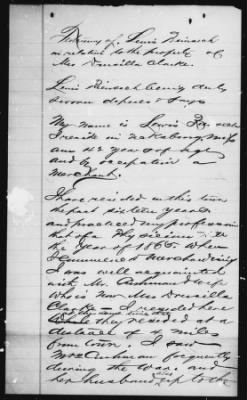 Testimony of Lewis Heinsich
in relation to the property of
Mrs Drusilla Clarke.
Lewis Heinsich being duly
sworn deposes & says
My name is Lewis
I reside in Miss
am 42 years of age
and by occupation a
Merchant.
I have resided in this town
the past sixteen years
and practiced my profession
that of a Physician till
the year of 1865. When
I commenced Merchandising
I was well acquainted
with Mr. Cushman & wife
who is now Mrs Drusilla
Clarke
they resided at a
distance of 4 miles
from town. I saw
Mrs Cushman frequently
during the War, and
her husband up to the